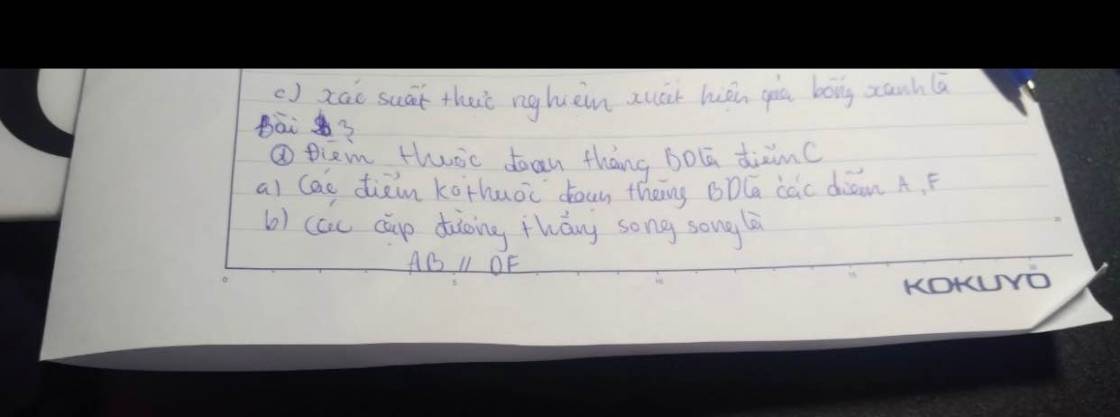 c) xác suất thực nghiệm xuất hiện quả bóng xanh là
Bài 3
a) Điểm thuộc đoạn thẳng BD là điểm C
a) Các điểm ko thuộc đoạn thẳng BD là các điểm A, F
b) Các cặp đường thẳng song song là
AB // DF
0 5 10 15 20
KOKUYO